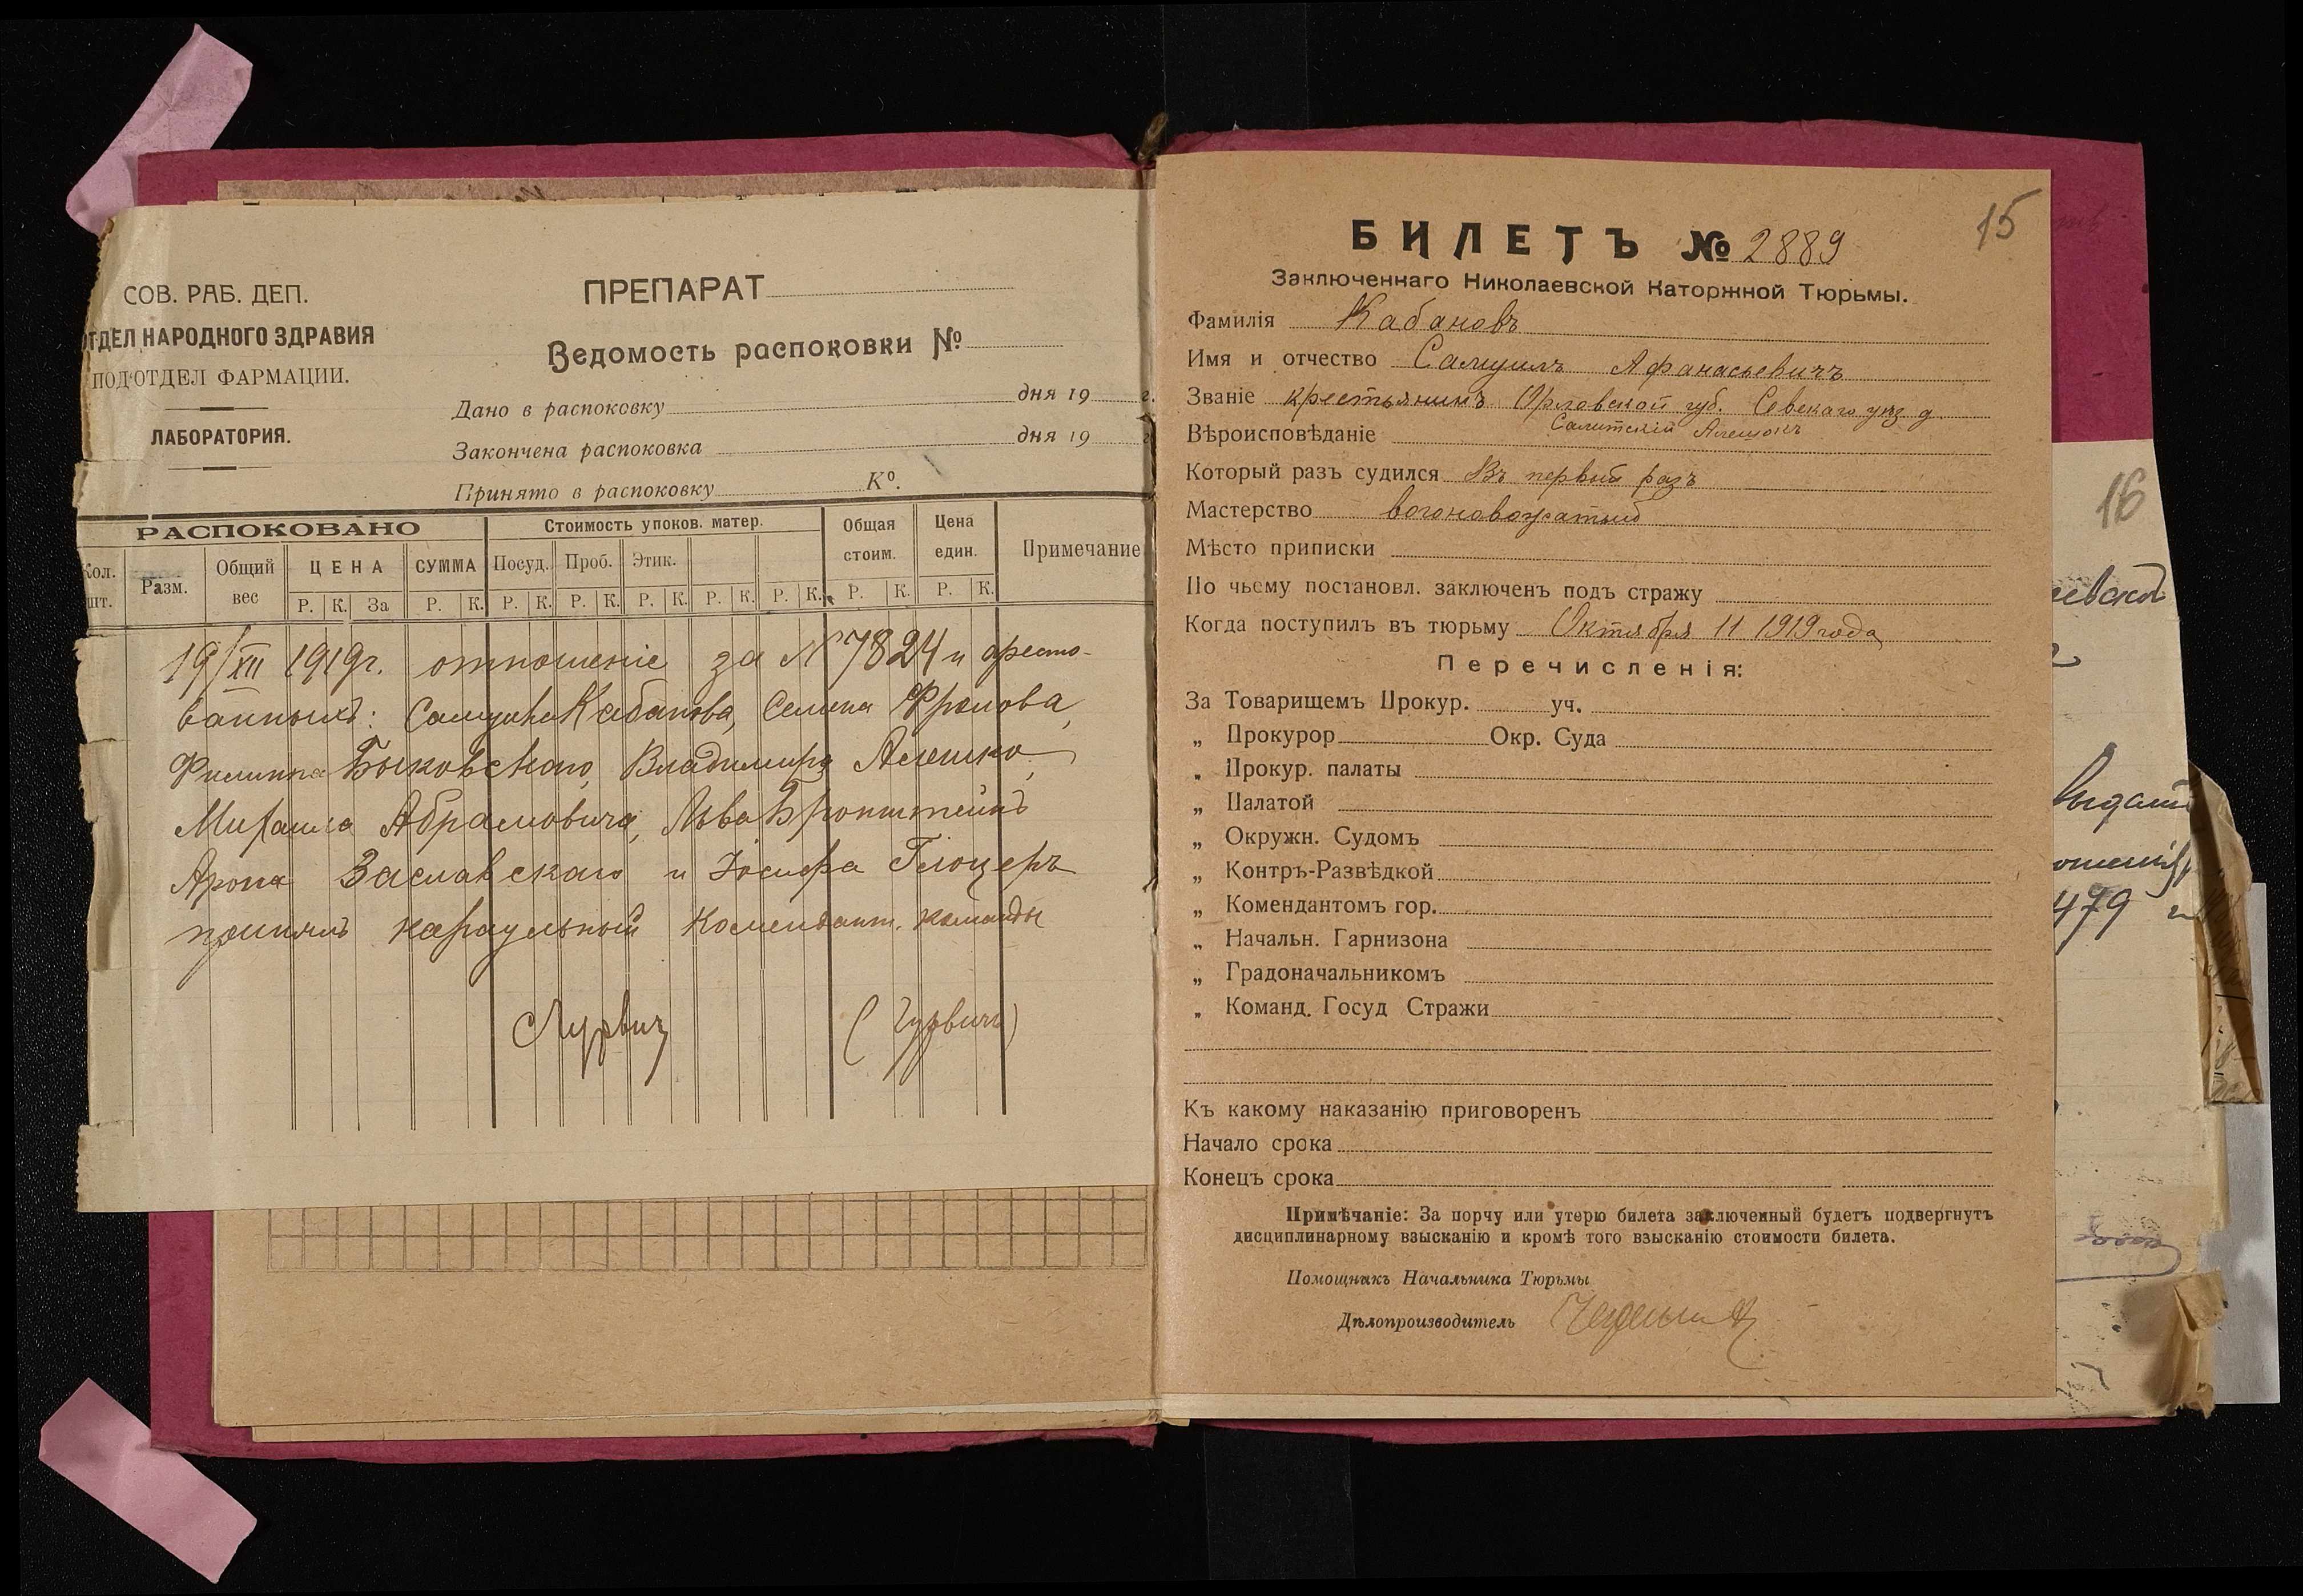 СОВ. РАБ. ДЕП.
ОТДЕЛ НАРОДНОГО ЗДРАВИЯ
ПОД'ОТДЕЛ ФАРМАЦИИ.
ЛАБОРАТОРИЯ.
ПРЕПАРАТ
Ведомость распоковки №
Дано в распоковку дня 19 г.
Закончена распоковка дня 19 г.
Принято в распоковку К⁰.
РАСПОКОВАНО Стоимость упоков. матер. Общая стоим. Цена един. Примечание
Кол. шт. Разм. Общий вес ЦЕНА СУММА Посуд. Проб. Этик.
Р. К. За Р. К. Р. К. Р. К. Р. К. Р. К. Р. К. Р. К. Р. К.
19/XII 1919г. отношеніе за № 7824 и аресто-
ванныхъ: Самуила Кабанова, Семена Фролова,
Филиппа Быковскаго, Владимира Алешко,
Михаила Абрамовича, Льва Бронштейнъ
Арона Заславскаго и Іосифа Глоцеръ
принялъ караульный комендант. команды
Гурвич (Гурвичъ)
15
БИЛЕТЪ № 2889
Заключеннаго Николаевской Каторжной Тюрьмы.
Фамилія Кабановъ
Имя и отчество Самуилъ Афанасьевичъ
Званіе крестьянинъ Орловской губ. Севскаго уѣз д.
Вѣроисповѣданіе
Который разъ судился Въ первый разъ
Мастерство вогоновожатый
Мѣсто приписки
По чьему постановл. заключенъ подъ стражу
Когда поступилъ въ тюрьму Октября 11 1919 года
Перечисленія:
За Товарищемъ Прокур. уч.
„ Прокурор Окр. Суда
„ Прокур. палаты
„ Палатой
„ Окружн. Судомъ
„ Контръ-Развѣдкой
„ Комендантомъ гор.
„ Начальн. Гарнизона
„ Градоначальникомъ
„ Команд. Госуд Стражи
Къ какому наказанію приговоренъ
Начало срока
Конецъ срока
Примѣчаніе: За порчу или утерю билета заключенный будетъ подвергнутъ
дисциплинарному взысканію и кромѣ того взысканію стоимости билета.
Помощникъ Начальника Тюрьмы
Дѣлопроизводитель
16
479